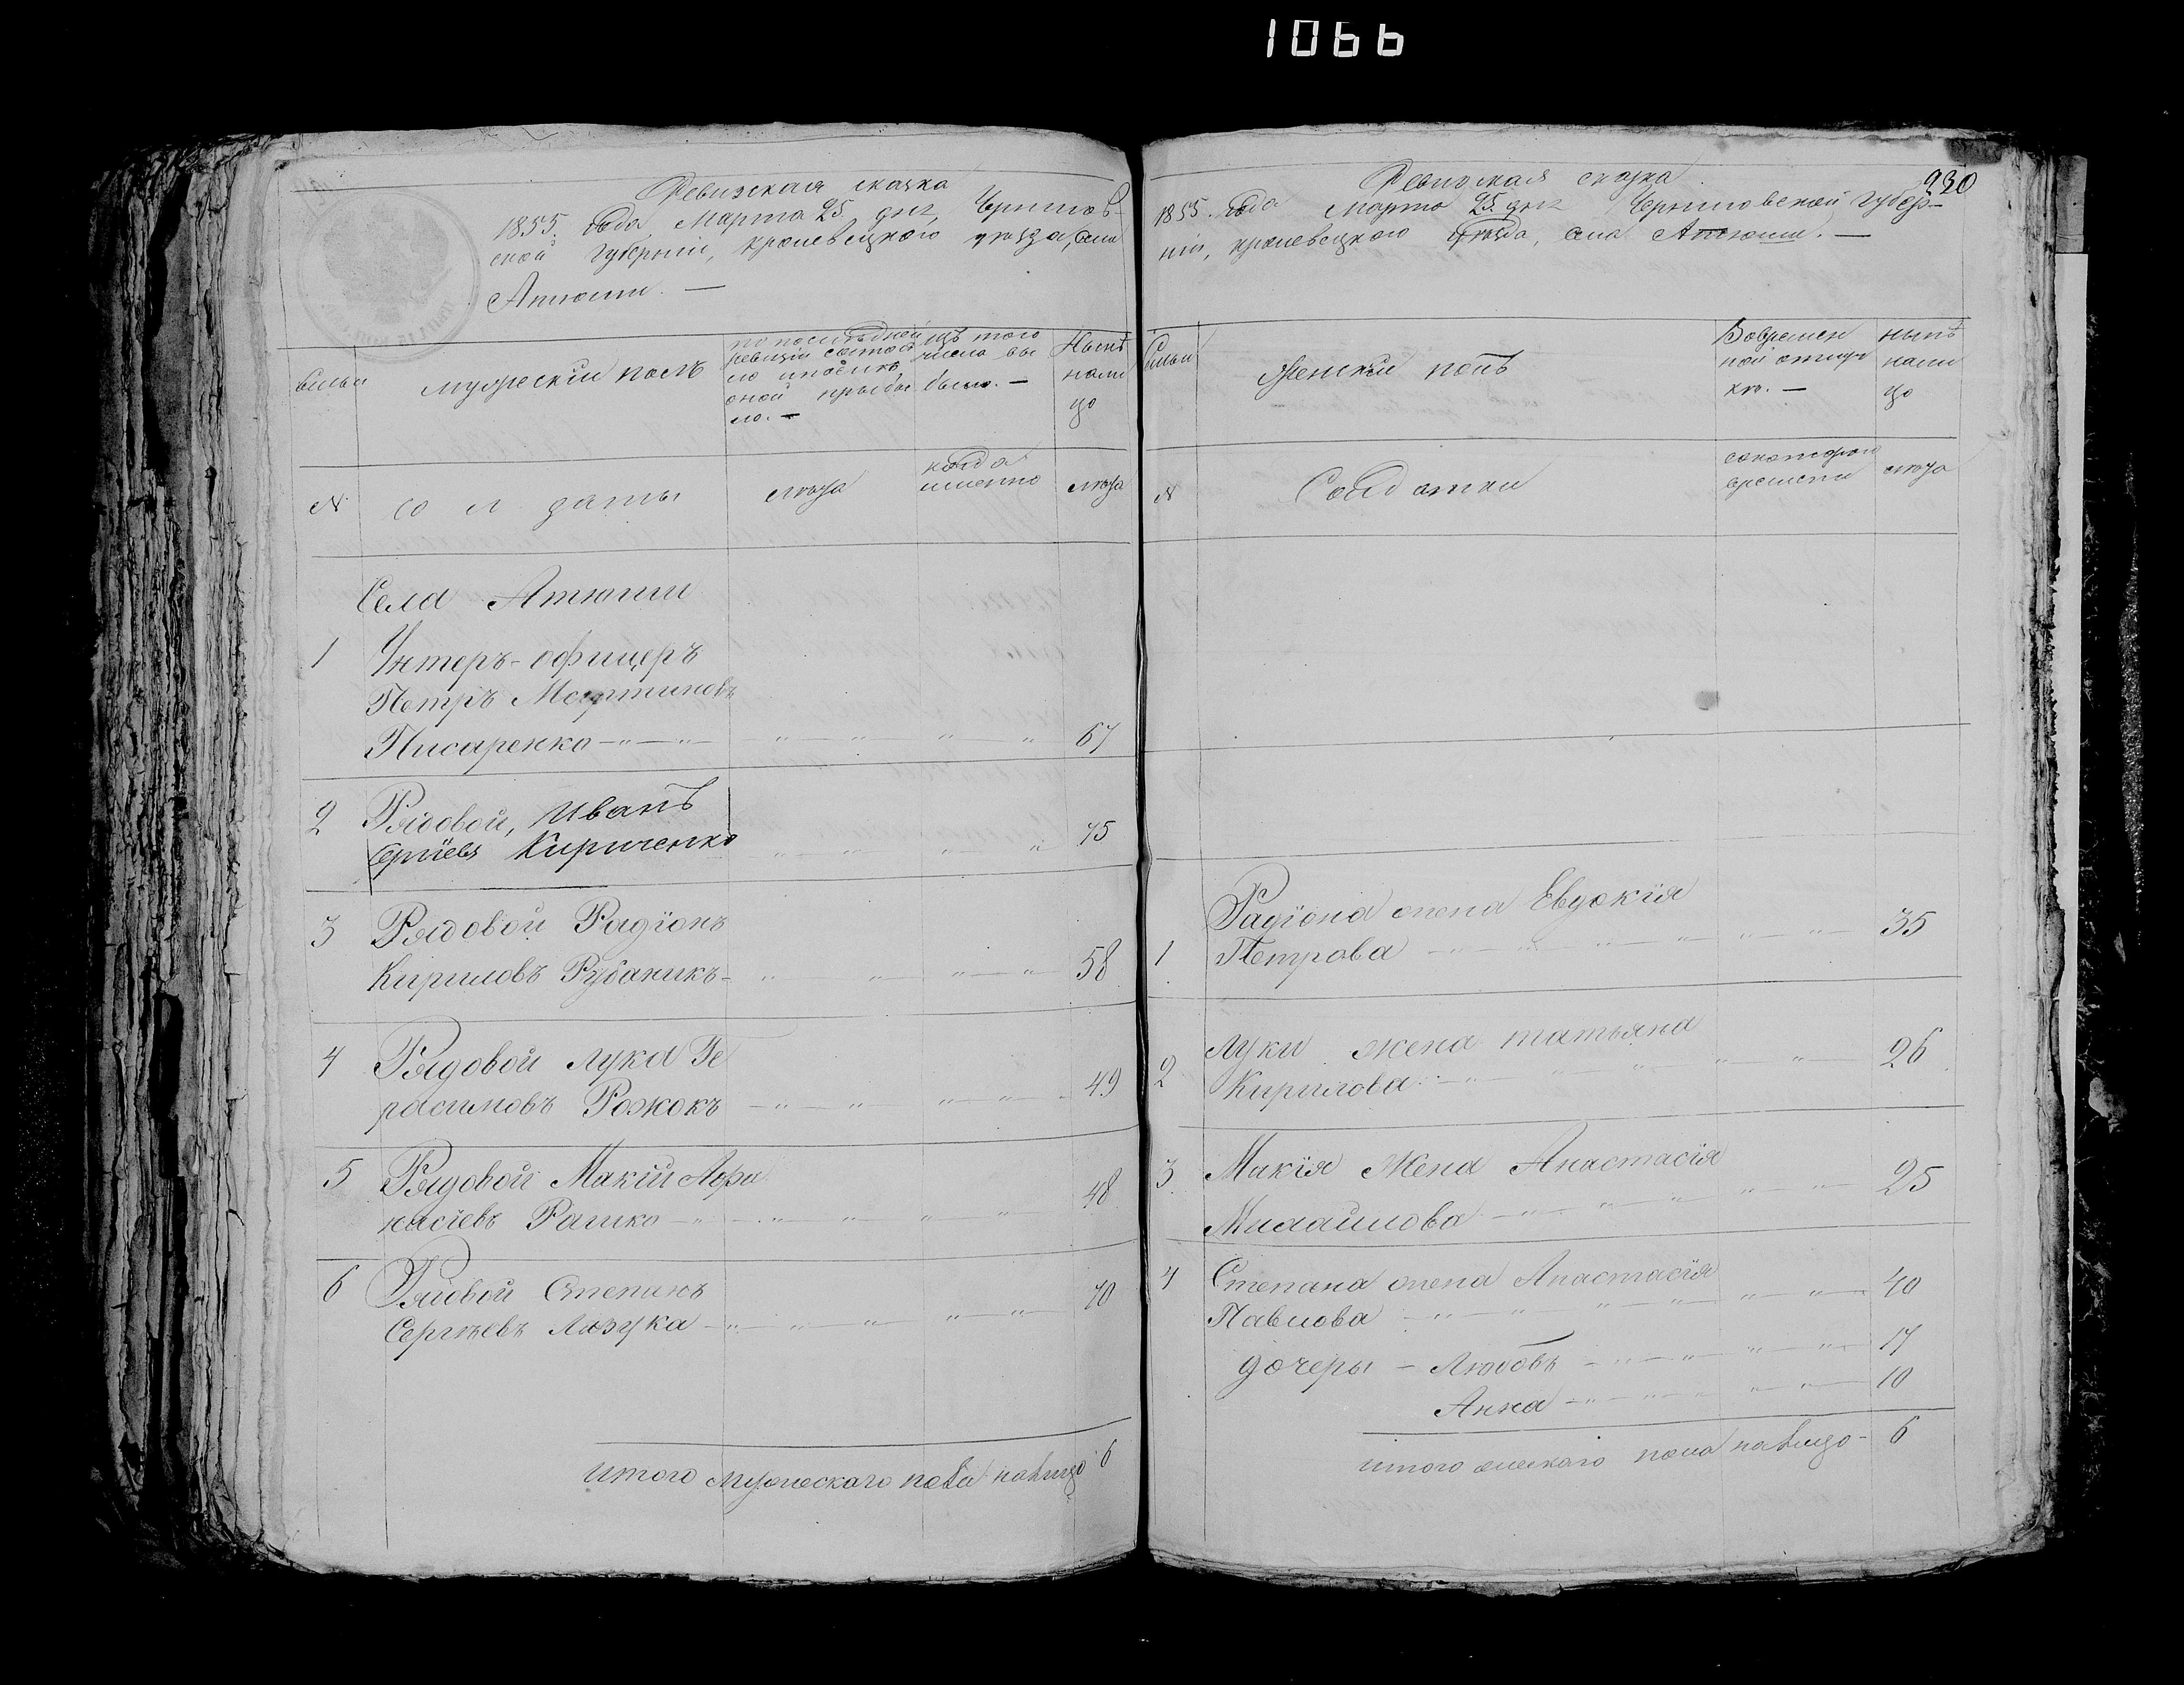 1066
Ревизская сказка
1855 года Марта 25 дня, Чернигов-
ской губернии, кролевецкого уезда, села
Атюши. —
Семьи
мужеский полъ
по последней
ревизии состоя
ло и после
оной прибы
ло. —
изъ того
числа вы
было. —
Ныне
нали
цо
№
солдаты
лѣта
когда
именно
лѣта
Села Атюши
1 Унтеръ-офицеръ
Петръ Мартиновъ
Писаренко — " — " — " " " " 67
2 Рядовой, Иванъ
Сергіевъ Кириченко " " " " 45
3 Рядовой Радіонъ
Кириловъ Рубаникъ - " " " " 58
4 Рядовой Лука Ге
расимовъ Рожокъ — " " " " 49
5 Рядовой Макій Афа
насіевъ Рашко — " — " " " " 48
6 Рядовой Степанъ
Сергѣевъ Лазука — " " " " " 40
итого мужескаго пола налицо 6
230
Ревизская сказка
1855 года Марта 25 дня Черниговской губер-
ніи, кролевецкого уезда, села Атюши. —
Семьи
Женскій полъ
Вовремен
ной отлуч
ке. —
нынѣ
нали
цо
№
Солдатки
с которого
времени
лѣта
1 Радіона жена Евдокія
Петрова — " — " " " " " 35
2 Луки жена татьяна
Кирилова — " " " " " 26
3 Макія Жена Анастасія
Михайлова — " " " " " 25
4 Степана жена Анастасія
Павлова — " " " " " " 40
дочеры - Любовь - " — " " " 17
Анна - " — " " " 10
итого женскаго пола налицо - 6